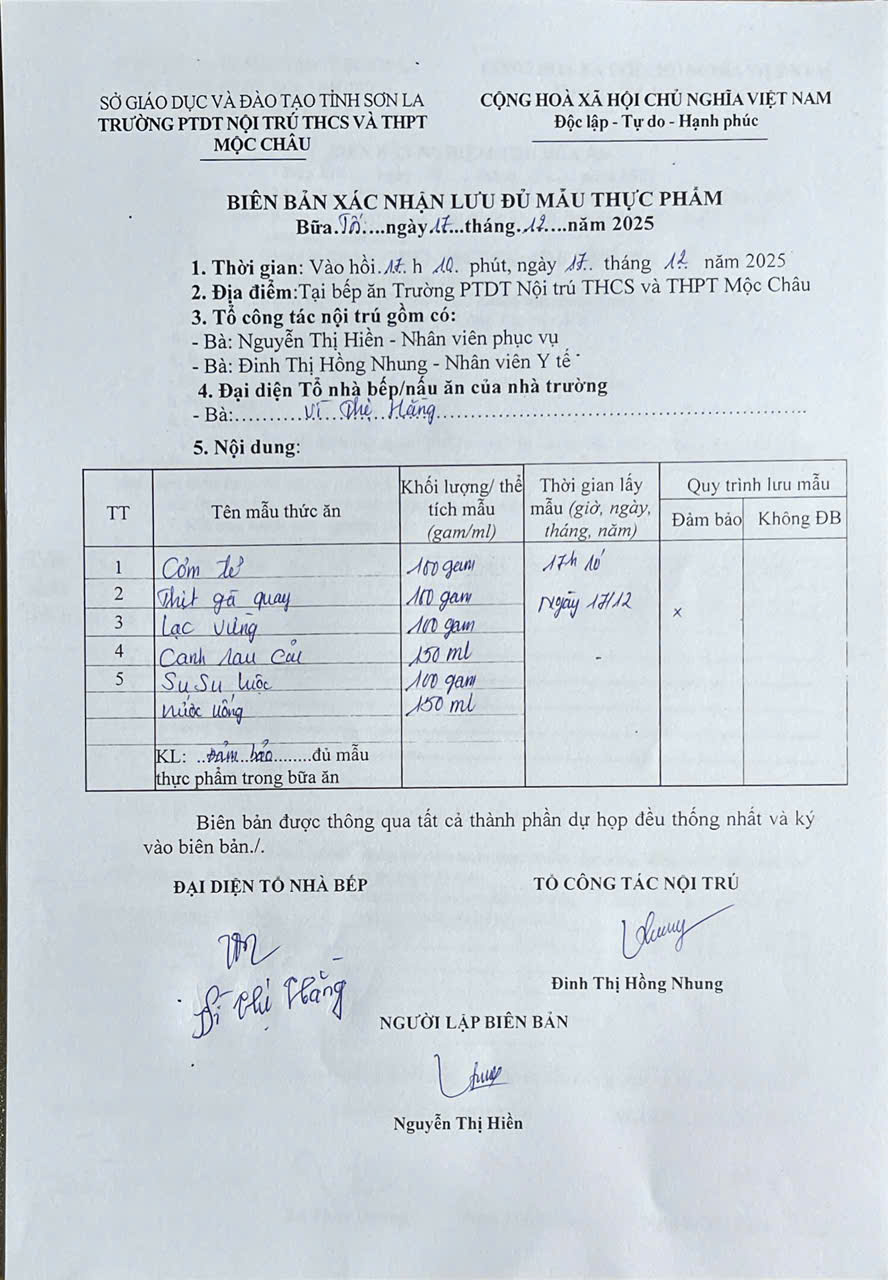 SỞ GIÁO DỤC VÀ ĐÀO TẠO TỈNH SƠN LA
TRƯỜNG PTDT NỘI TRÚ THCS VÀ THPT
MỘC CHÂU
CỘNG HOÀ XÃ HỘI CHỦ NGHĨA VIỆT NAM
Độc lập - Tự do - Hạnh phúc
BIÊN BẢN XÁC NHẬN LƯU ĐỦ MẪU THỰC PHẨM
Bữa.Tối....ngày.17...tháng.12....năm 2025
1. Thời gian: Vào hồi.17. h 10. phút, ngày 17. tháng 12 năm 2025
2. Địa điểm:Tại bếp ăn Trường PTDT Nội trú THCS và THPT Mộc Châu
3. Tổ công tác nội trú gồm có:
- Bà: Nguyễn Thị Hiền - Nhân viên phục vụ
- Bà: Đinh Thị Hồng Nhung - Nhân viên Y tế
4. Đại diện Tổ nhà bếp/nấu ăn của nhà trường
- Bà:..........Vì Thị Hằng..........
5. Nội dung:
TT Tên mẫu thức ăn Khối lượng/ thể tích mẫu (gam/ml) Thời gian lấy mẫu (giờ, ngày, tháng, năm) Quy trình lưu mẫu
Đảm bảo Không ĐB
1 Cơm tẻ 100 gam 17h 10
2 Thịt gà quay 100 gam Ngày 17/12
3 Lạc vừng 100 gam x
4 Canh rau cải 150 ml -
5 Su Su luộc 100 gam
nước uống 150 ml
KL: ..Đảm..bảo.........đủ mẫu
thực phẩm trong bữa ăn
Biên bản được thông qua tất cả thành phần dự họp đều thống nhất và ký
vào biên bản./.
ĐẠI DIỆN TỔ NHÀ BẾP
TỔ CÔNG TÁC NỘI TRÚ
Vì Thị Hằng
Đinh Thị Hồng Nhung
NGƯỜI LẬP BIÊN BẢN
Nguyễn Thị Hiền